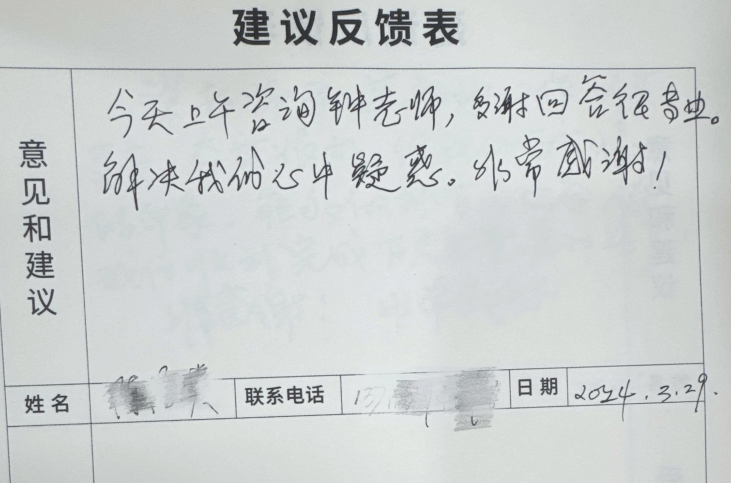 建议反馈表
意见和建议
今天上午咨询钟老师，感谢回答很专业。
解决我的心中疑惑。非常感谢！
姓名
联系电话
日期 2024.3.29.